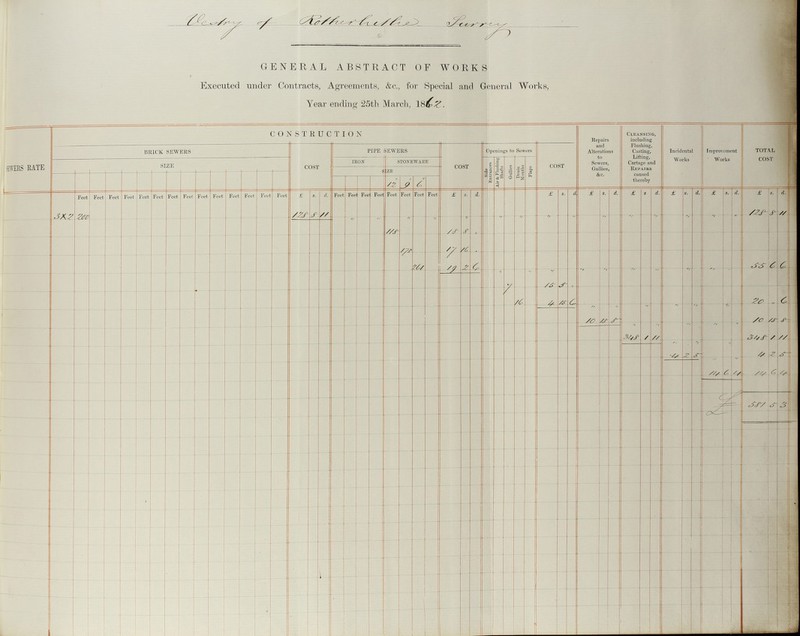 Vestry of Rotherhithe Surrey
GENERAL ABSTRACT OF WORKS
Executed under Contracts, Agreements, &c., for Special and General Works,
Year ending 25th March, 1862.
SEWERS RATE
CONSTRUCTION
BRICK SEWERS
SIZE
COST
PIPE SEWERS
IRON STONEWARE
SIZE
12 9 6
COST
Openings to Sewers
Side Entrances
Gullies
Flaps
COST
Repairs and Alterations to Sewers, Gullies, &c.
CLEANSING, including Flushing, Casting, Lifting, Cartage and REPAIRS caused thereby
Incidental Works
Improvement Works
TOTAL COST
Feet Feet Feet Feet Feet Feet Feet Feet Feet Feet Feet Feet Feet Feet £ s. d. Feet Feet Feet Feet Feet Feet Feet Feet £ s. d. £ s. d. £ s. d. £ s. d. £ s. d. £ s. d. £ s. d.
200 128 8 11 128 8 11
118 18 8 -
170 17 16 -
261 19 2 6 55 6 6
7 15 5 -
16 4 15 6 20 - 6
10 18 8 10 18 8
348 1 11 348 1 11
4 2 5 4 2 5
14 6 4 14 6 4
£ 581 5 3